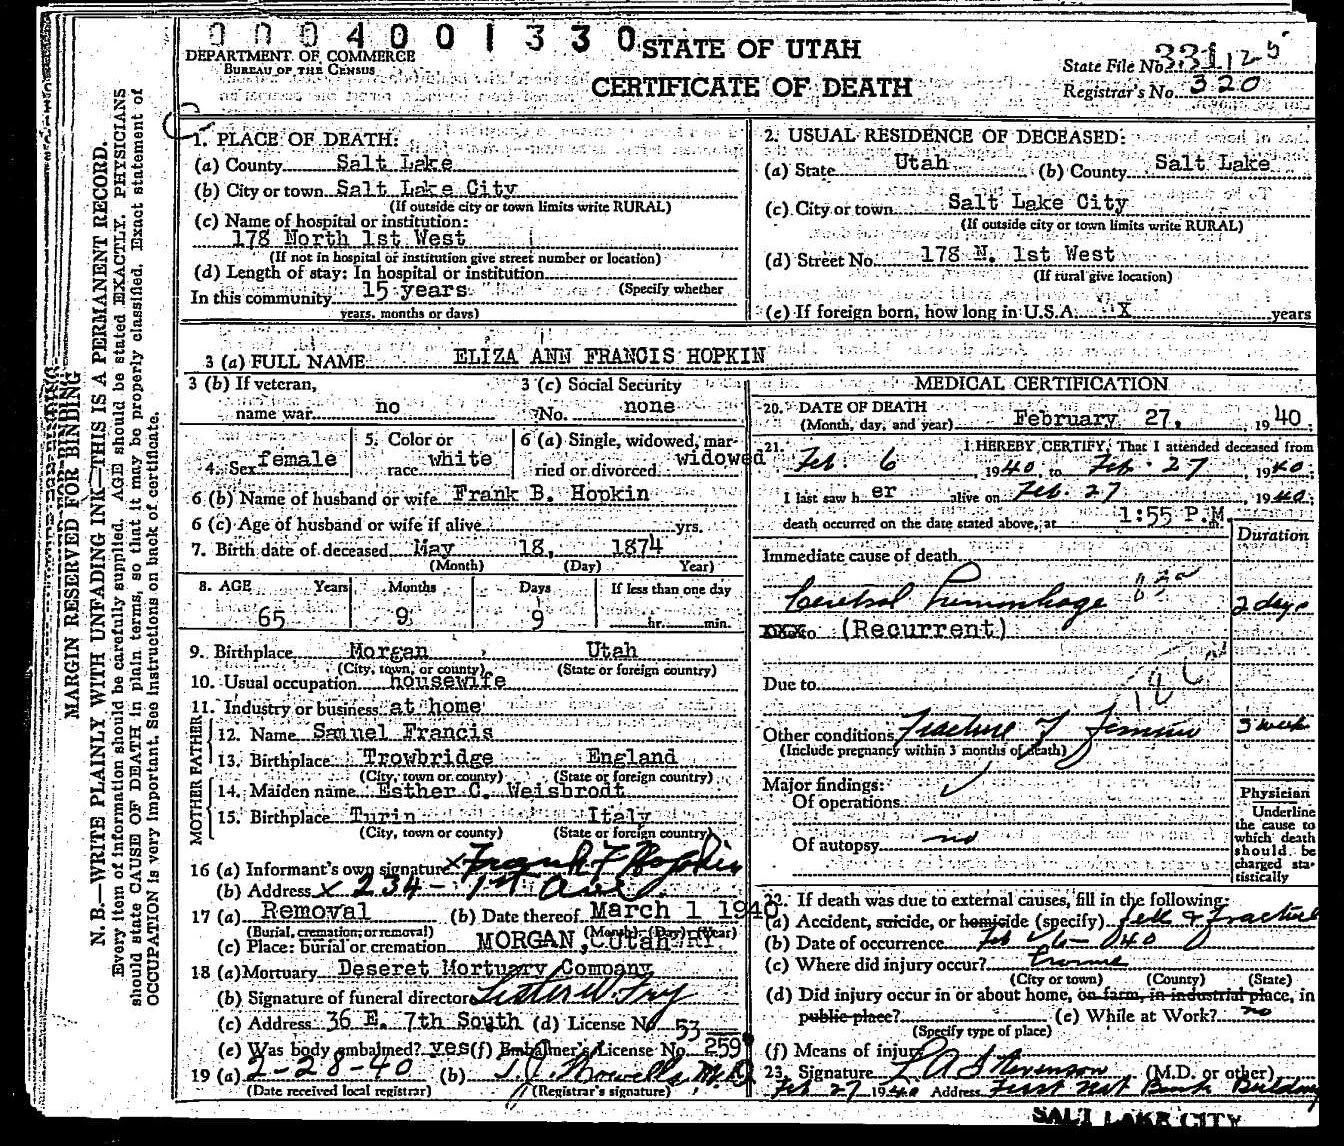 0004001330
DEPARTMENT OF COMMERCE
BUREAU OF THE CENSUS
STATE OF UTAH
CERTIFICATE OF DEATH
State File No.
Registrar's No. 320
MARGIN RESERVED FOR BINDING
N. B.—WRITE PLAINLY WITH UNFADING INK—THIS IS A PERMANENT RECORD.
Every item of information should be carefully supplied. AGE should be stated EXACTLY. PHYSICIANS
should state CAUSE OF DEATH in plain terms, so that it may be properly classified. Exact statement of
OCCUPATION is very important. See instructions on back of certificate.
1. PLACE OF DEATH:
(a) County Salt Lake
(b) City or town Salt Lake City
(If outside city or town limits write RURAL)
(c) Name of hospital or institution:
178 North 1st West
(If not in hospital or institution give street number or location)
(d) Length of stay: In hospital or institution
(Specify whether
In this community 15 years
years, months or days)
2. USUAL RESIDENCE OF DECEASED:
(a) State Utah (b) County Salt Lake
(c) City or town Salt Lake City
(If outside city or town limits write RURAL)
(d) Street No. 178 N. 1st West
(If rural give location)
(e) If foreign born, how long in U.S.A. X years
3 (a) FULL NAME ELIZA ANN FRANCIS HOPKIN
3 (b) If veteran, name war no
3 (c) Social Security No. none
4. Sex female
5. Color or race white
6 (a) Single, widowed, married or divorced widowed
6 (b) Name of husband or wife Frank B. Hopkin
6 (c) Age of husband or wife if alive yrs.
7. Birth date of deceased May 18, 1874
(Month) (Day) Year)
8. AGE Years Months Days If less than one day
65 9 9 hr. min.
9. Birthplace Morgan, Utah
(City, town, or county) (State or foreign country)
10. Usual occupation housewife
11. Industry or business at home
FATHER
12. Name Samuel Francis
13. Birthplace Trowbridge England
(City, town or county) (State or foreign country)
MOTHER
14. Maiden name Esther C. Weisbrodt
15. Birthplace Turin Italy
(City, town or county) (State or foreign country)
16 (a) Informant's own signature x Frank F Hopkin
(b) Address x 234 - 1st Ave
17 (a) Removal (b) Date thereof March 1 1940
(Burial, cremation, or removal) (Month) (Day) (Year)
(c) Place: burial or cremation MORGAN, Utah
18 (a) Mortuary Deseret Mortuary Company
(b) Signature of funeral director Lester W. Fry
(c) Address 36 E. 7th South (d) License No. 53
(e) Was body embalmed? yes (f) Embalmer's License No. 259
19 (a) 2-28-40 (b) T. J. Howells M.D.
(Date received local registrar) (Registrar's signature)
MEDICAL CERTIFICATION
20. DATE OF DEATH February 27, 1940
(Month, day, and year)
21. I HEREBY CERTIFY, That I attended deceased from
Feb. 6 1940, to Feb. 27 1940;
I last saw her alive on Feb. 27, 1940;
death occurred on the date stated above, at 1:55 P.M.
Duration
Immediate cause of death
Cerebral hemorrhage 2 days
xxx to (Recurrent)
Due to
Other conditions Fracture of femur 3 week
(Include pregnancy within 3 months of death)
Major findings:
Of operations
Of autopsy no
Physician
Underline
the cause to
which death
should be
charged statistically
22. If death was due to external causes, fill in the following:
(a) Accident, suicide, or homicide (specify) fell & fracture
(b) Date of occurrence Feb 6 - 940
(c) Where did injury occur?
(City or town) (County) (State)
(d) Did injury occur in or about home, on farm, in industrial place, in
public place?
(Specify type of place)
(e) While at Work? no
(f) Means of injury
23. Signature L A Stevenson (M.D. or other)
Feb 27 1940 Address First Nat Bank Building
SALT LAKE CITY